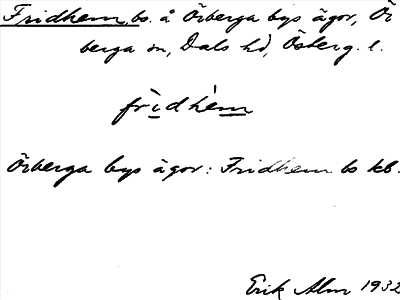 Fridhem, bs. å Örberga bys ägor, Ör
berga sn, Dals hd, Österg. l.
frìdhèm
Örberga bys ägor: Fridhem bs kb.
Erik Alm 1932